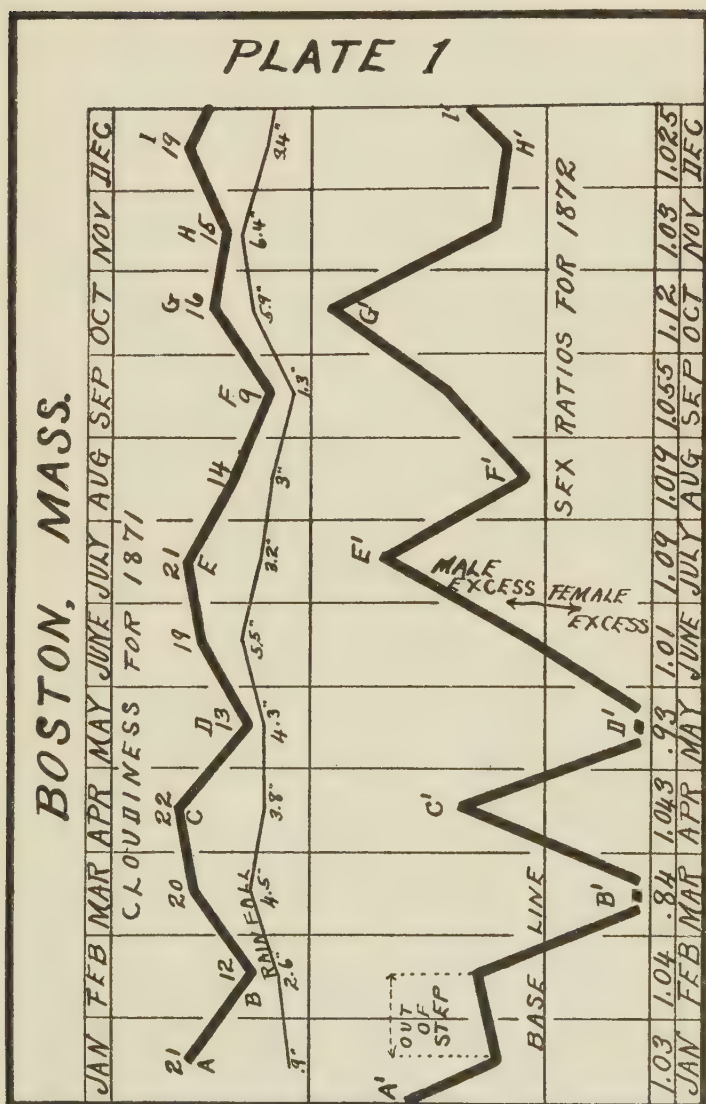 PLATE 1
BOSTON, MASS.
JAN FEB MAR APR MAY JUNE JULY AUG SEP OCT NOV DEC
CLOUDINESS FOR 1871
21 12 20 22 13 19 21 14 9 16 15 19
A B C D E F G H I
RAINFALL
.9" 2.6" 4.5" 3.8" 4.3" 5.5" 3.2" 3" 1.3" 5.9" 6.4" 3.4"
A' B' C' D' E' F' G' H' I'
OUT
OF
STEP
MALE
EXCESS
FEMALE
EXCESS
BASE LINE
SEX RATIOS FOR 1872
1.03 1.04 .84 1.043 .93 1.01 1.09 1.019 1.055 1.12 1.03 1.025
JAN FEB MAR APR MAY JUNE JULY AUG SEP OCT NOV DEC